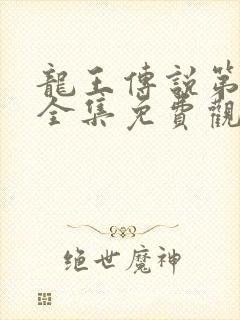 龍王傳說第
全集免費觀
绝世魔神